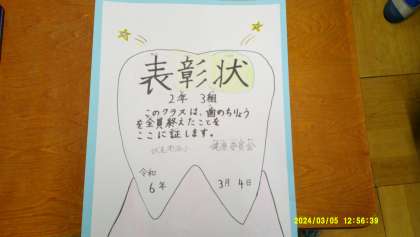 表彰状
2年 3組
このクラスは、歯のちりょう
を全員終えたことを
ここに証します。
健康委員会
令和
6年 3月 4日
2024/03/05 12:56:39